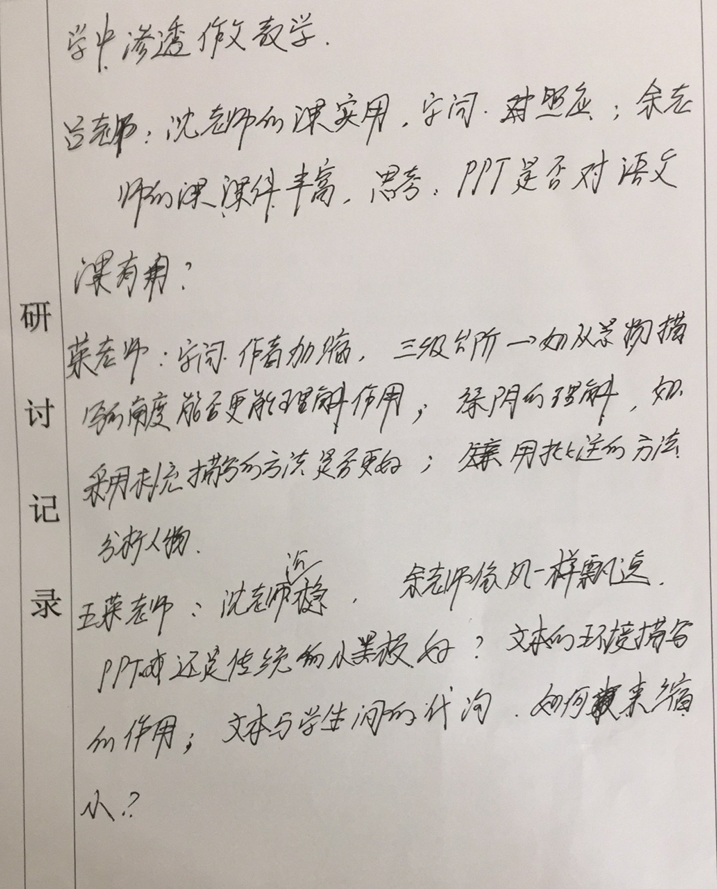 学中渗透作文教学.
吕老师：沈老师的课实用，字词.对照应；余老
师的课课件丰富，思考：PPT是否对语文
课有用？
研讨记录
英老师：字词.作者加缩，三级台阶→如从景物描
写的角度能否更能理解作用；的理解，如
采用补充描写的方法是否更好；用批注的方法
分析人物.
王英老师：沈老师沉稳，余老师像风一样飘逸.
PPT还是传统的小黑板好？文本的环境描写
的作用；文本与学生间的代沟.如何来缩
小？